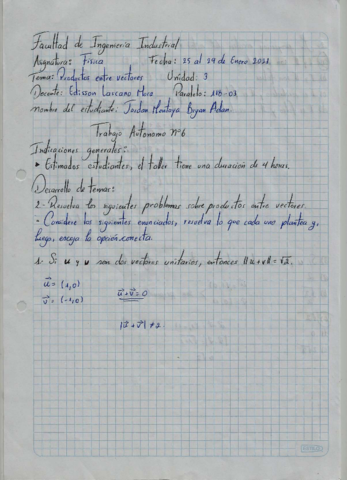 Facultad de Ingeniería Industrial
Asignatura: Física Fecha: 25 al 29 de Enero 2021
Tema: Productos entre vectores Unidad: 3
Docente: Edisson Lascano Mora Paralelo:
Nombre del estudiante: Jordan Montoya Bryan Adan
Trabajo Autónomo Nº6
Indicaciones generales:
• Estimados estudiantes, el taller tiene una duración de 4 horas.
Desarrollo de temas:
2.- Resuelva los siguientes problemas sobre productos entre vectores.
- Considere los siguientes enunciados, resuelva lo que cada uno plantea y,
luego, escoja la opción correcta.
1- Si u y v son dos vectores unitarios, entonces ||u+v|| = √2.
u⃗ = (1,0)
u⃗+v⃗ = 0
v⃗ = (-1,0)
|u⃗+v⃗| ≠ 2